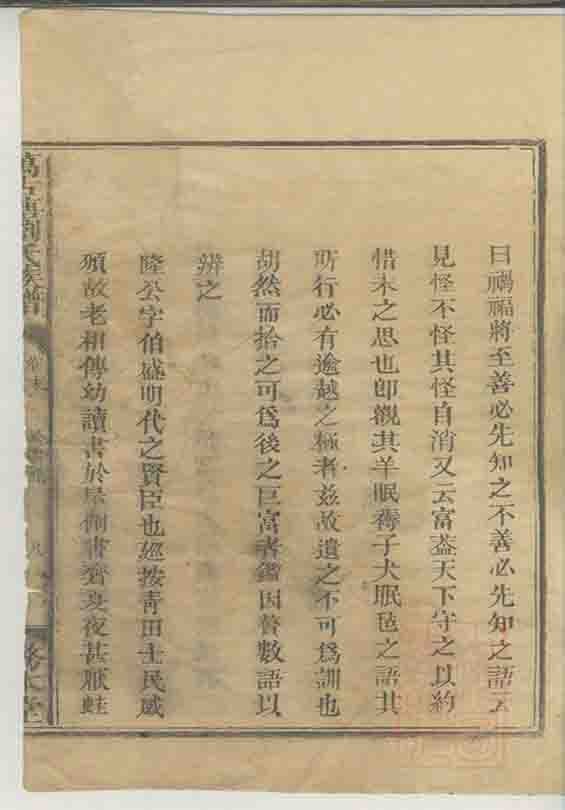 曰禍福將至善必先知之不善必先知之語云
見怪不怪其怪自消又云富蓋天下守之以約
惜未之思也卽觀其羊眠壽子犬眠毡之語其
所行必有逾越之極者茲故遺之不可為訓也
胡然而拾之可為後之巨富者鑑因贅數語以
辨之
隆公字伯盛明代之賢臣也廵按靑田士民咸
頌故老相傳幼讀書於書齋夏夜甚厭蛙
劉氏族譜
卷末
八